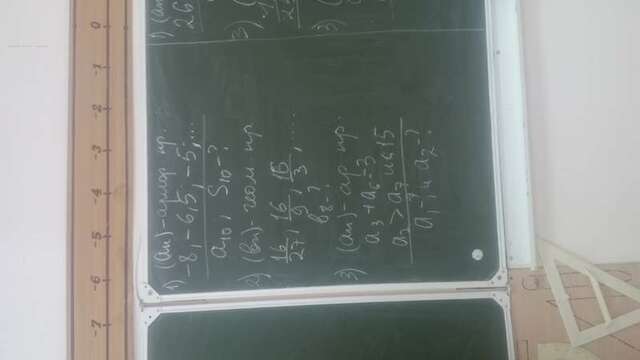 -7 -6 -5 -4 -3 -2 -1 0
1) (an) - арифм пр.
-8; -6,5; -5; ...
a10, S10 - ?
2) (bn) - геом пр
16/27, 16/9, 16/3, ....
b8 - ?
3) (an) - ар пр.
a3 + a6 = 3
a2 > a7 на 15
a1 - ?, и a2 - ?
1) (an
26
2) (
3) (